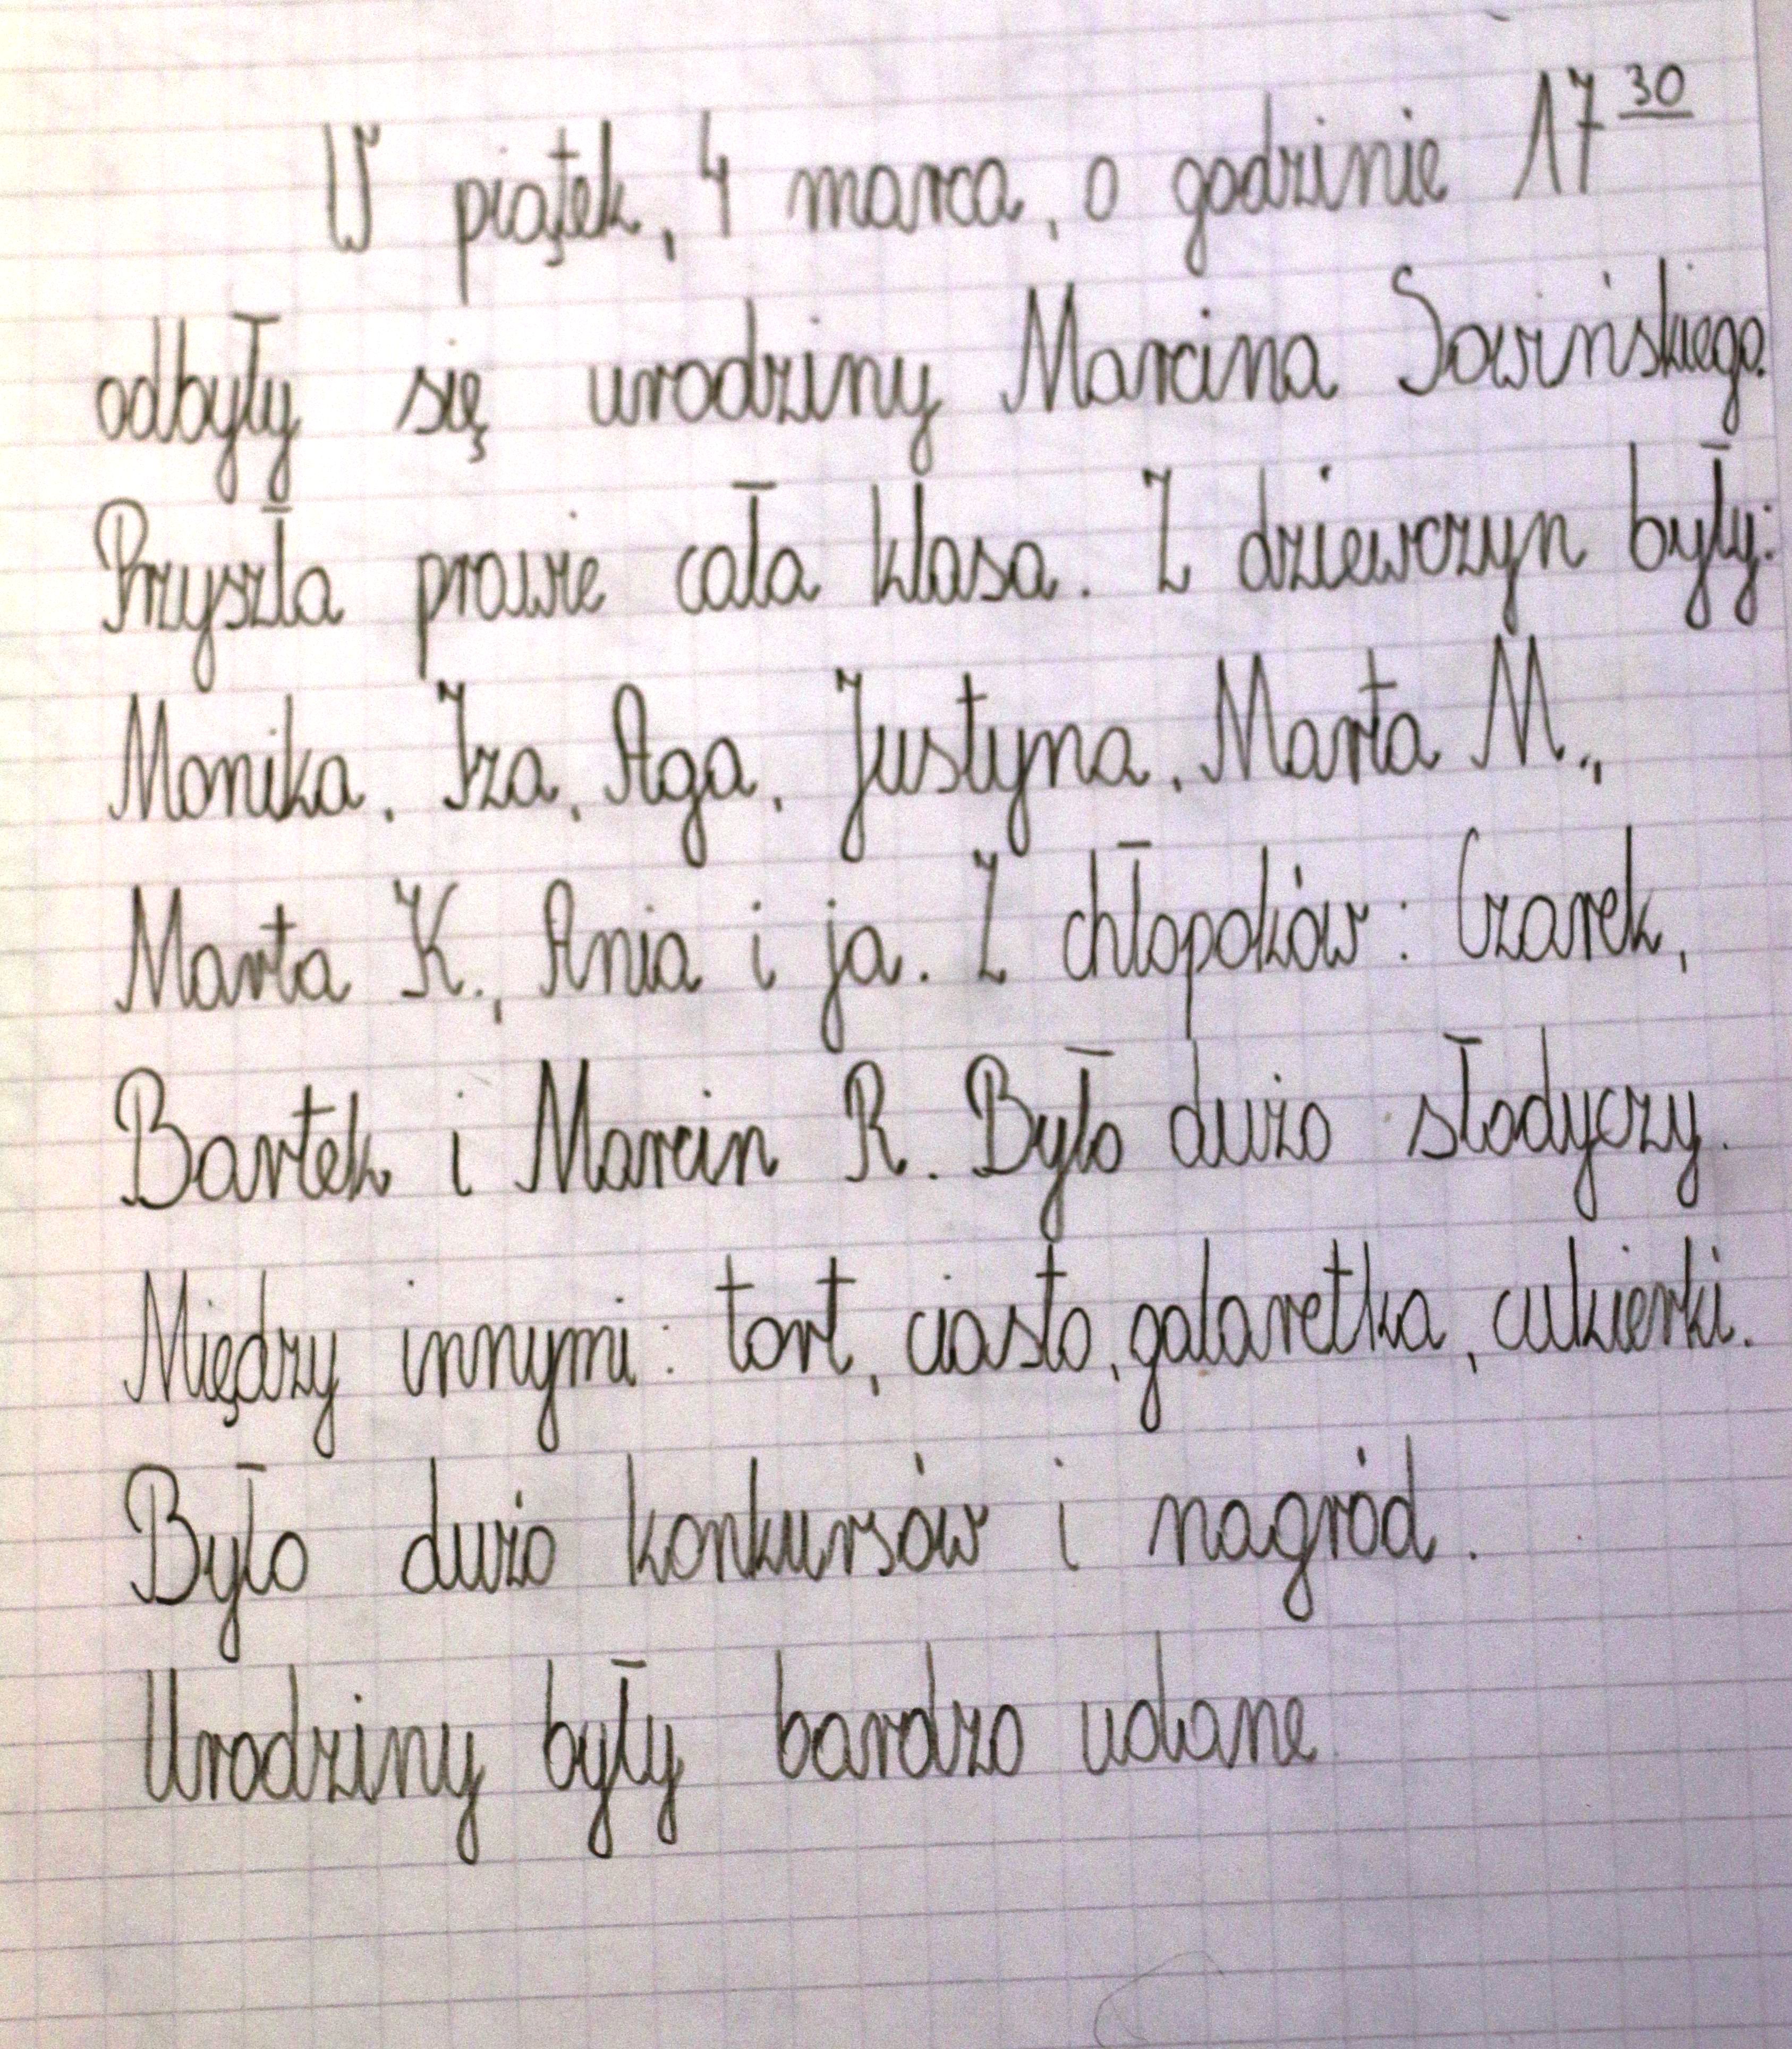 W piątek, 4 marca, o godzinie 17 30
odbyły się urodziny Marcina Sowińskiego.
Przyszła prawie cała klasa. Z dziewczyn były:
Monika, Iza, Aga, Justyna, Marta M.,
Marta K., Ania i ja. Z chłopaków: Czarek,
Bartek i Marcin R. Było dużo słodyczy.
Między innymi: tort, ciasto, galaretka, cukierki.
Było dużo konkursów i nagród.
Urodziny były bardzo udane